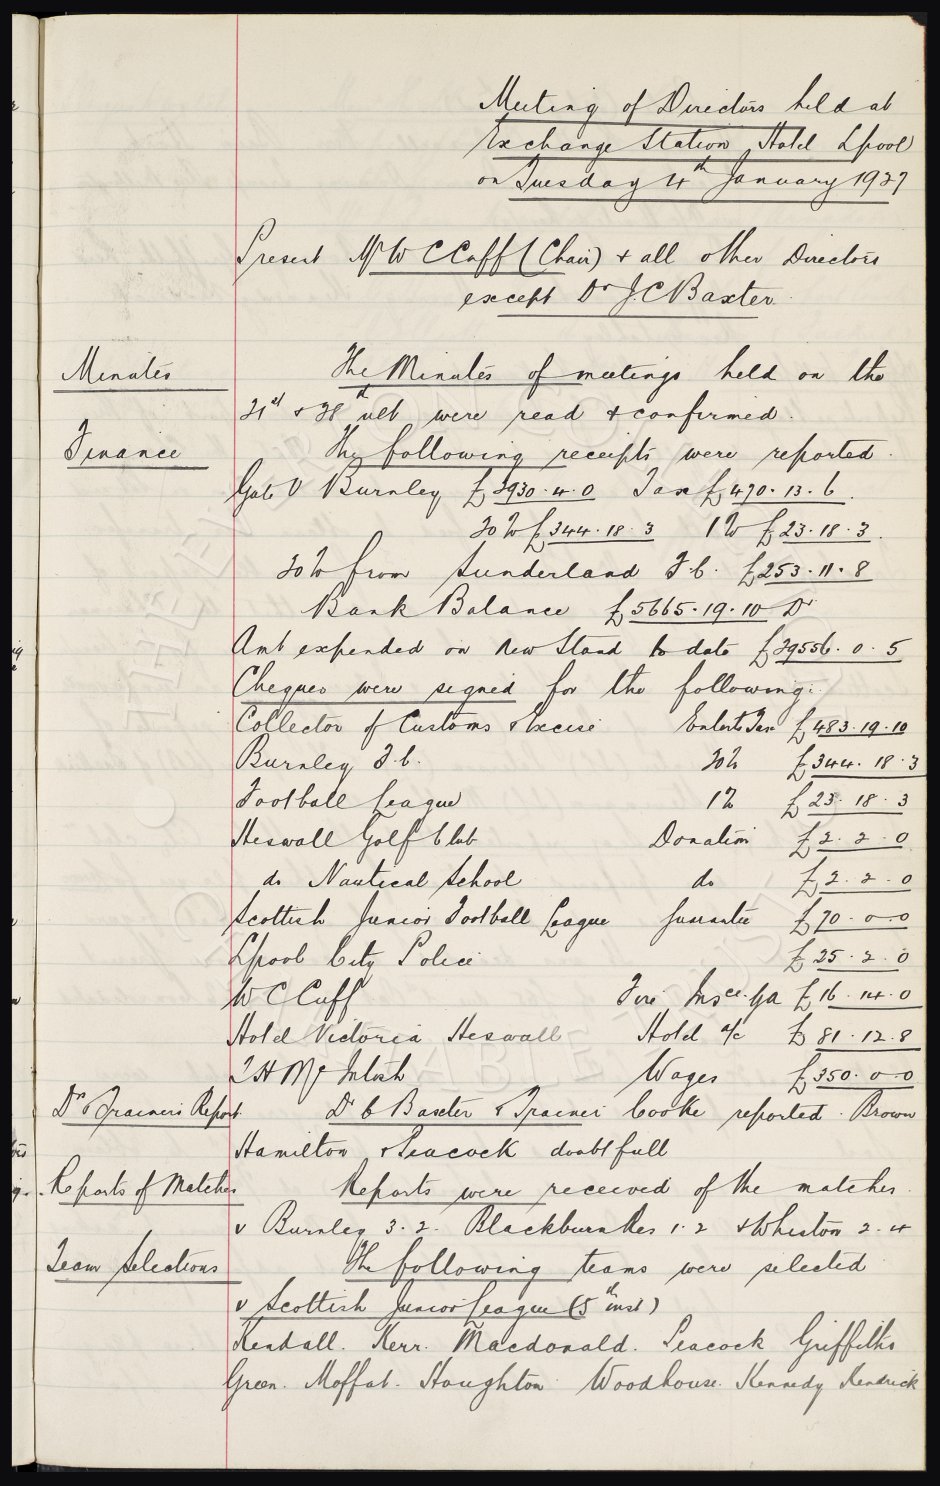 Meeting of Directors held at
Exchange Station Hotel Lpool
on Tuesday 4th January 1927
Present Mr W C Cuff (Chair) + all other Directors
except Dr J. C Baxter.
Minutes
The Minutes of meetings held on the
21st + 28th ult were read + confirmed.
Finance
The following receipts were reported.
Gate V Burnley £2930.4.0 Tax £470.13.6.
20% £344.18.3 1% £23.18.3.
20% from Sunderland F.C. £253.11.8
Bank Balance £5665.19.10 Dr
Amt expended on New Stand to date £29556.0.5
Cheques were signed for the following:
Collector of Customs & Excise Enterts Tax £483.19.10
Burnley F.C. 20% £344.18.3
Football League 1% £23.18.3
Heswall Golf Club Donation £2.2.0
do Nautical School do £2.2.0
Scottish Junior Football League Guarantee £70.0.0
Lpool City Police £25.2.0
W C Cuff Fire Insce. Ga £16.14.0
Hotel Victoria Heswall Hotel a/c £81.12.8
T H McIntosh Wages £350.0.0
Dr & Trainers Report
Dr C Baxter & Trainer Cooke reported. Brown
Hamilton & Peacock doubtfull
Reports of Matches
Reports were received of the matches
v Burnley 3.2. Blackburn Res 1.2 & Whiston 2.4
Team Selections
The following teams were selected
v Scottish Junior League (5th inst)
Kendall. Kerr. Macdonald. Peacock Griffiths
Green. Moffat. Houghton Woodhouse. Kennedy Kendrick